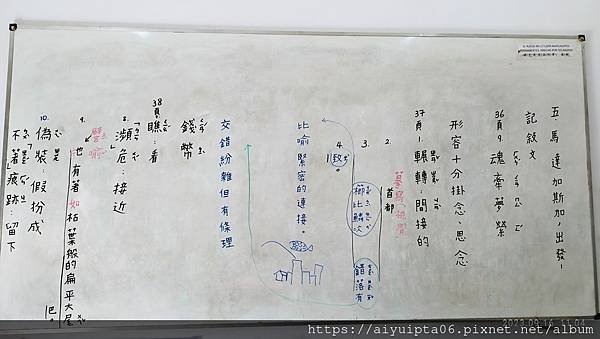 五、馬達加斯加，出發！
記敘文
36頁 1. 魂牽夢縈
形容十分掛念、思念
37頁 1. 輾轉：間接的
摹寫（視覺）
2. 首都
3. 櫛比鱗次
錯落有
4. 致。
比喻緊密的連接。
交錯紛雜但有條理
錢幣
38頁 瞧：看
8. 瀕危：接近
譬喻
9. 也有著如枯葉般的扁平大尾巴。
10. 偽裝：假扮成
不著痕跡：留下
2023.09.14 11:04
https://aiyuipta06.pixnet.net/album